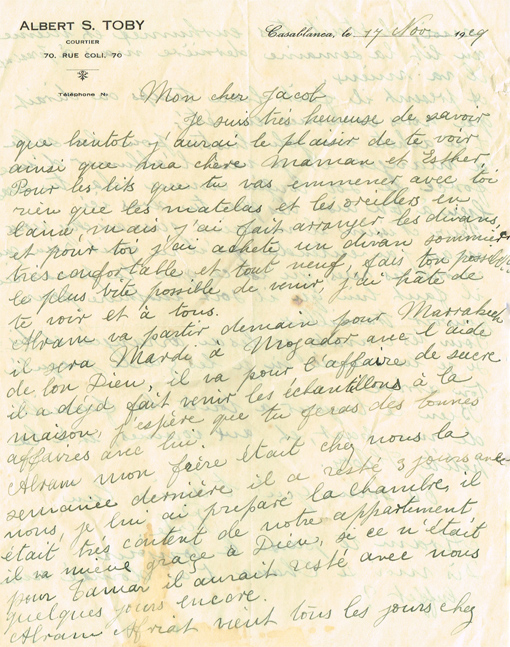 ALBERT S. TOBY
COURTIER
70, RUE COLI, 70
Téléphone N°
Casablanca, le 17 Nov 1929
Mon cher Jacob
Je suis très heureuse de savoir
que bientot j'aurai le plaisir de te voir
ainsi que ma chère maman et Esther,
Pour les lits que tu vas emmener avec toi
rien que les matelas et les oreillers en
laine, mais j'ai fait arranger les divans,
et pour toi j'ai acheté un divan sommier
très confortable et tout neuf, fais ton possible
le plus vite possible de venir, j'ai hâte de
te voir et à tous.
Abram va partir demain pour Marrakech
il sera Mardi à Mogador avec l'aide
de bon Dieu, il va pour l'affaire de sucre
il a dejà fait venir les échantillons à la
maison, j'espère que tu feras des bonnes
affaires avec lui.
Abram mon frère était chez nous la
semaine dernière il a resté 3 jours avec
nous, je lui ai préparé la chambre, il
était très content de notre appartement,
il va mieux graçe à Dieu, si ce n'était
pour Tamar il aurait resté avec nous
quelques jours encore.
Abram Afriat vient tous les jours chez